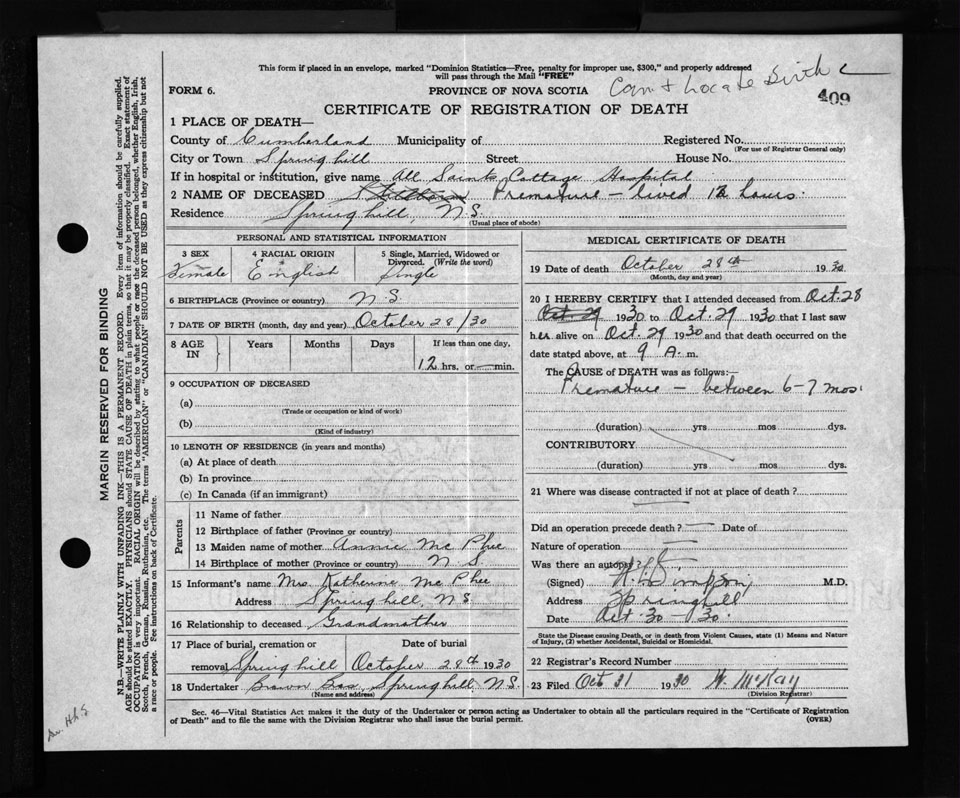 This form if placed in an envelope, marked "Dominion Statistics—Free, penalty for improper use, $300," and properly addressed
will pass through the Mail "FREE"
FORM 6. PROVINCE OF NOVA SCOTIA Can't Locate Birth
409
CERTIFICATE OF REGISTRATION OF DEATH
1 PLACE OF DEATH—
County of Cumberland Municipality of Registered No.
(For use of Registrar General only)
City or Town Springhill Street House No.
If in hospital or institution, give name All Saints Cottage Hospital
2 NAME OF DECEASED Stillborn Premature — lived 12 hours.
Residence Springhill, N.S.
(Usual place of abode)
PERSONAL AND STATISTICAL INFORMATION
3 SEX 4 RACIAL ORIGIN 5 Single, Married, Widowed or
Divorced. (Write the word)
Female English Single
6 BIRTHPLACE (Province or country) N.S.
7 DATE OF BIRTH (month, day and year) October 28/30
8 AGE IN Years Months Days If less than one day,
12 hrs. or — min.
9 OCCUPATION OF DECEASED
(a)
(Trade or occupation or kind of work)
(b)
(Kind of industry)
10 LENGTH OF RESIDENCE (in years and months)
(a) At place of death
(b) In province
(c) In Canada (if an immigrant)
Parents
11 Name of father
12 Birthplace of father (Province or country)
13 Maiden name of mother Annie McPhee
14 Birthplace of mother (Province or country) N.S.
15 Informant's name Mrs. Katherine McPhee
Address Springhill, N.S.
16 Relationship to deceased Grandmother
17 Place of burial, cremation or Date of burial
removal Springhill October 28th 1930
18 Undertaker Brown Bros, Springhill, N.S.
(Name and address)
MEDICAL CERTIFICATE OF DEATH
19 Date of death October 28th 1930
(Month, day and year)
20 I HEREBY CERTIFY that I attended deceased from Oct. 28
Oct. 29 1930 to Oct. 29 1930 that I last saw
her alive on Oct. 29 1930 and that death occurred on the
date stated above, at 9 A. m.
The CAUSE of DEATH was as follows:—
Premature — between 6-7 mos.
(duration) yrs mos dys.
CONTRIBUTORY
(duration) yrs mos dys.
21 Where was disease contracted if not at place of death ?
Did an operation precede death ? — Date of
Nature of operation —
Was there an autopsy ?
(Signed) Simpson, M.D.
Address Springhill
Date Oct. 30 - 30.
State the Disease causing Death, or in death from Violent Causes, state (1) Means and Nature
of Injury, (2) whether Accidental, Suicidal or Homicidal.
22 Registrar's Record Number
23 Filed Oct 31 1930 McKay
(Division Registrar)
Sec. 46—Vital Statistics Act makes it the duty of the Undertaker or person acting as Undertaker to obtain all the particulars required in the "Certificate of Registration
of Death" and to file the same with the Division Registrar who shall issue the burial permit. (OVER)
MARGIN RESERVED FOR BINDING
N.B.—WRITE PLAINLY WITH UNFADING INK—THIS IS A PERMANENT RECORD. Every item of information should be carefully supplied.
AGE should be stated EXACTLY. PHYSICIANS should STATE CAUSE OF DEATH in plain terms, so that it may be properly classified. Exact statement of
OCCUPATION is very important. RACIAL ORIGIN will be described by stating to what people or race the deceased person belonged, whether English, Irish,
Scotch, French, German, Russian, Ruthenian, etc. The terms "AMERICAN" or "CANADIAN" SHOULD NOT BE USED as they express citizenship but not
a race or people. See instructions on back of Certificate.